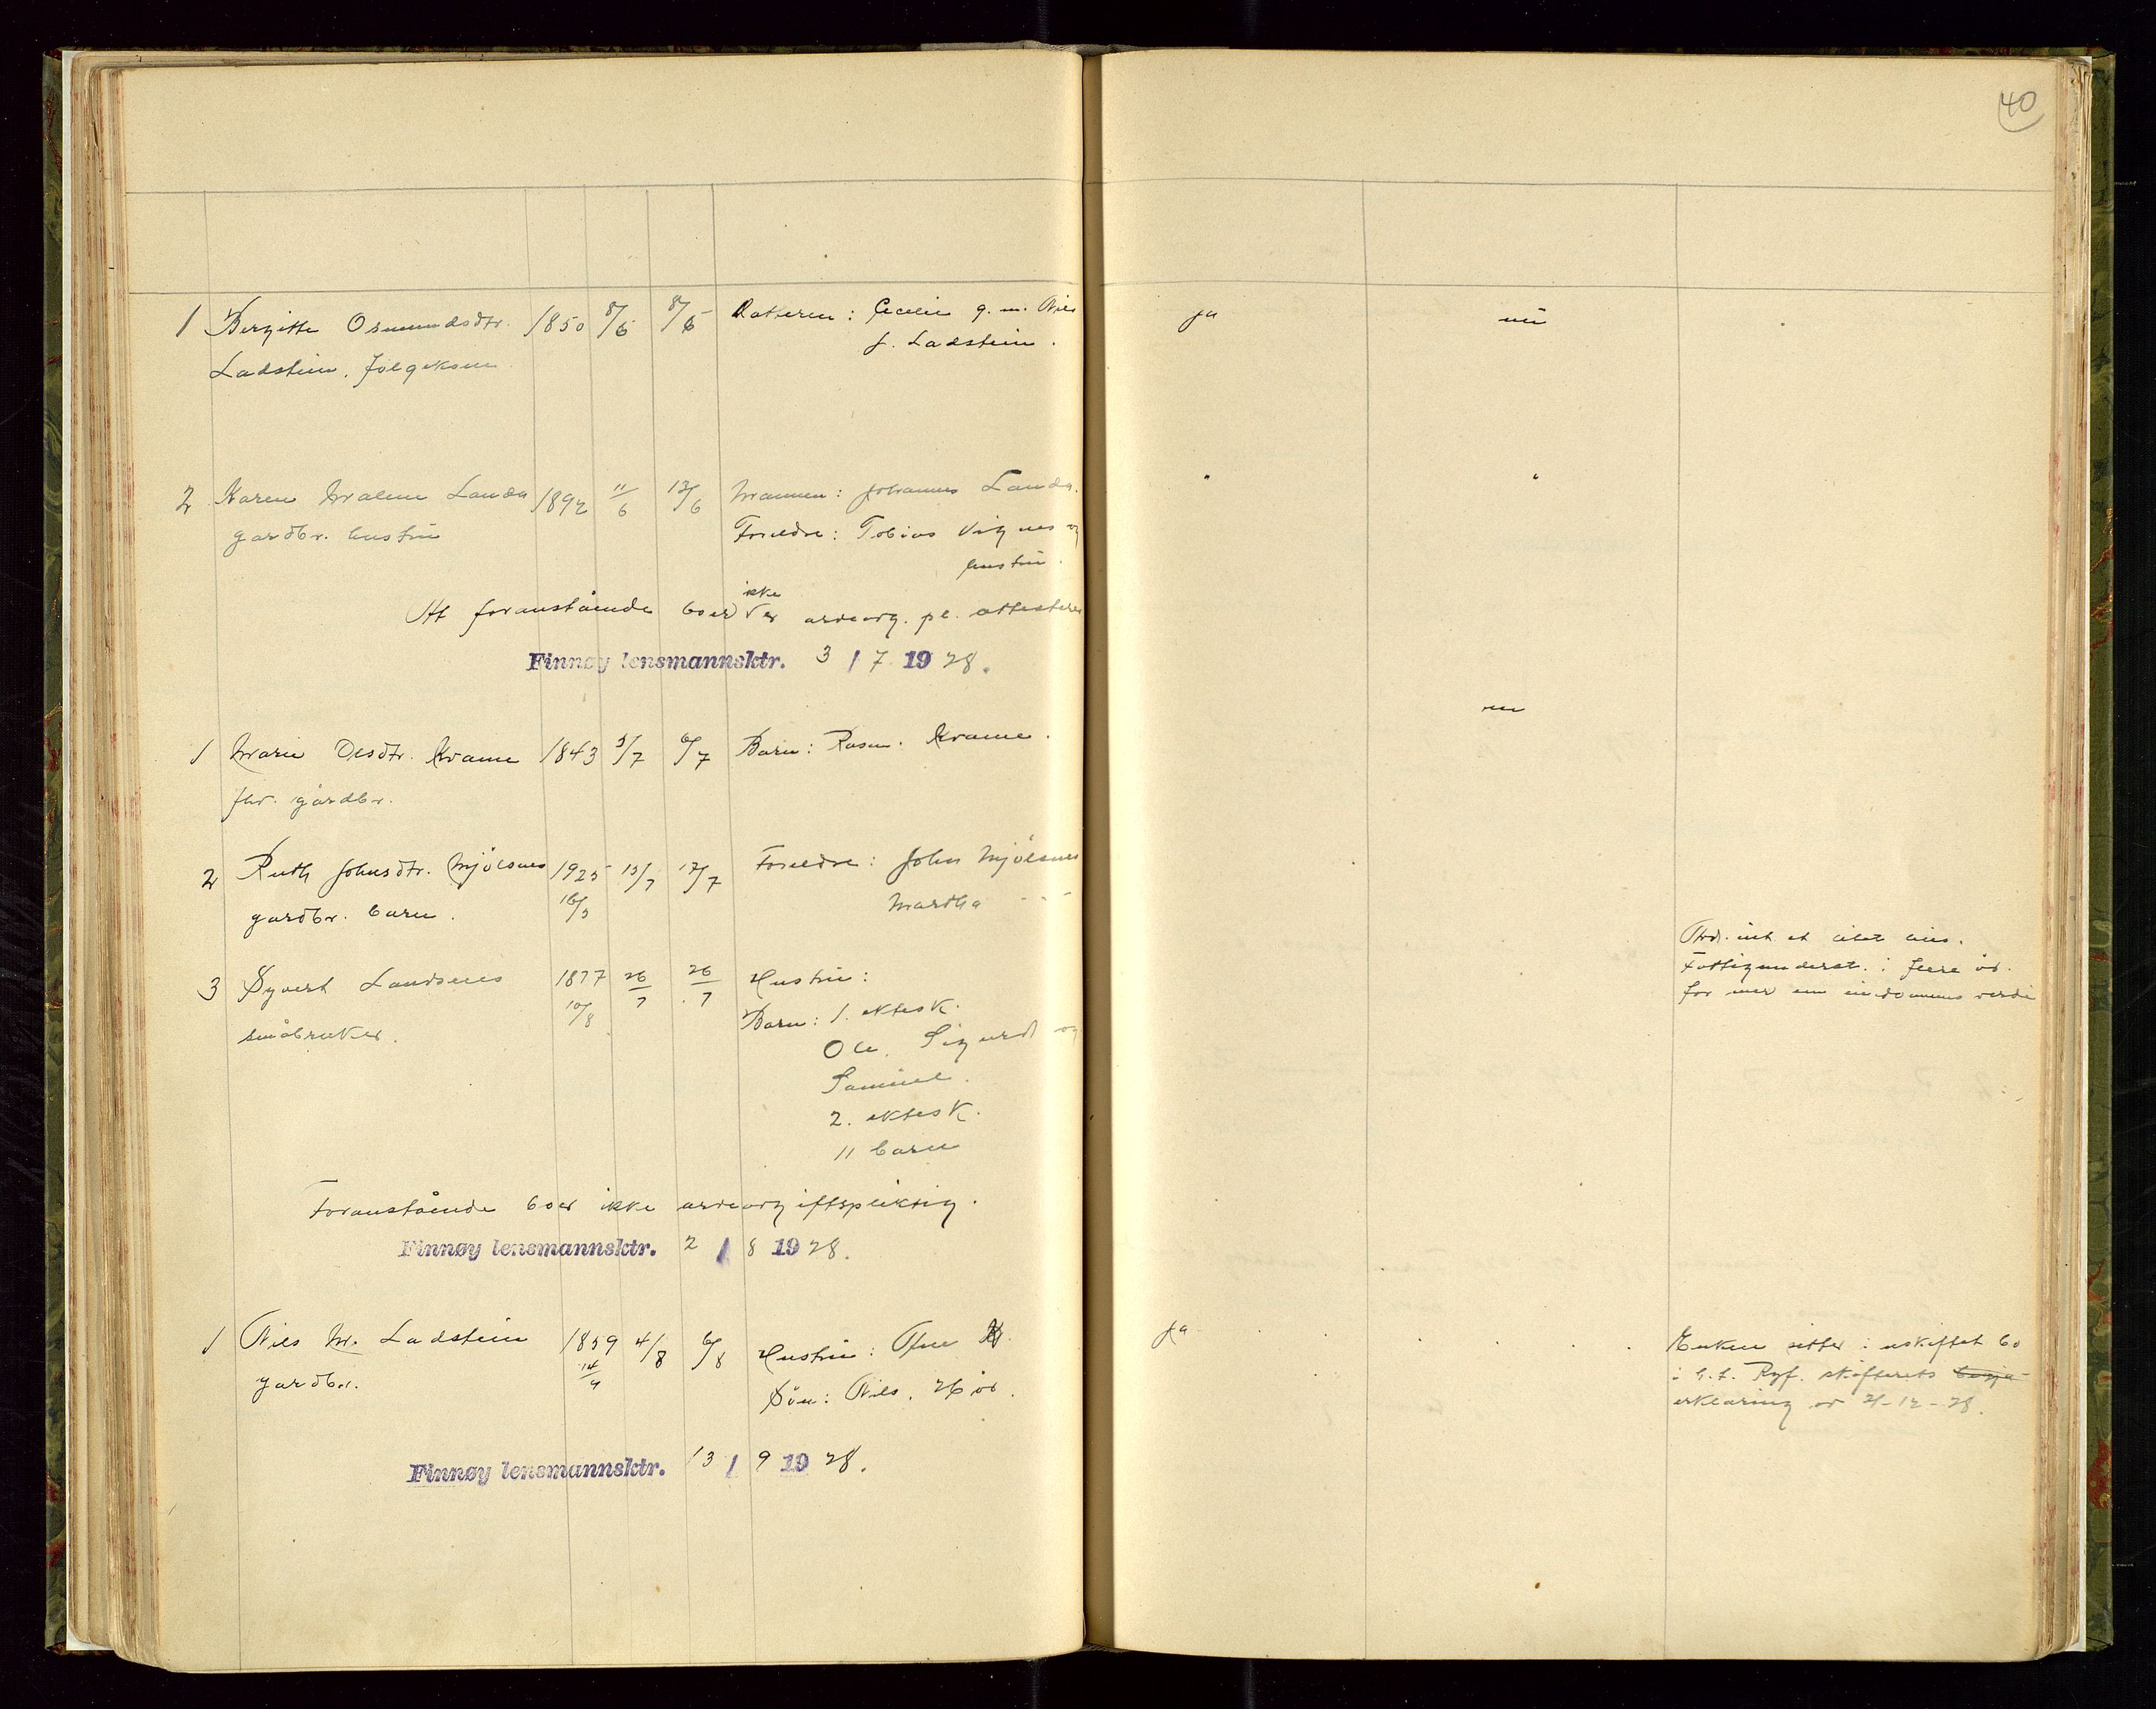 40
1 Bergitte Osmundsdtr. 1850 8/6 8/6 Datteren: Cecilie g. m. Nils ja nei
Ladstein, følgekone J. Ladstein.
2 Karen Malene Landa 1892 11/6 12/6 Mannen: Johannes Landa. " "
gardbr. hustru Foreldre: Tobias Vignes og
hustru.
At foranstående boer ikke er arveavg. pl. attesteres
Finnøy lensmannsktr. 3 / 7 1928.
1 Marie Olsdtr. Kvame 1843 5/7 6/7 Barn: Rasm. Kvame. nei
fhv. gårdbr.
2 Ruth Johnsdtr. Mjølsnes 1925 13/7 17/7 Foreldre: John Mjølsnes
gardbr. barn. 16/5 Martha - " -
3 Syvert Landsnes 1877 26/7 26/7 Hustru:
småbruker. 10/8 Barn: 1. ektesk.
Ole, Sigurd og
Samuel.
2. ektesk.
11 barn
Fattigunderst. i flere år.
for mer enn eiendommens verdi
Foranstående boer ikke arveavgiftspliktig.
Finnøy lensmannsktr. 2 / 8 1928.
1 Nils M. Ladstein 1859 4/8 6/8 Hustru: ja Enken sitter i uskiftet bo
gardbr. 14/4 Søn: Nils, 26 år. i h. t. Ryf. skifterets
erklæring av 21-12-28.
Finnøy lensmannsktr. 13 / 9 1928.